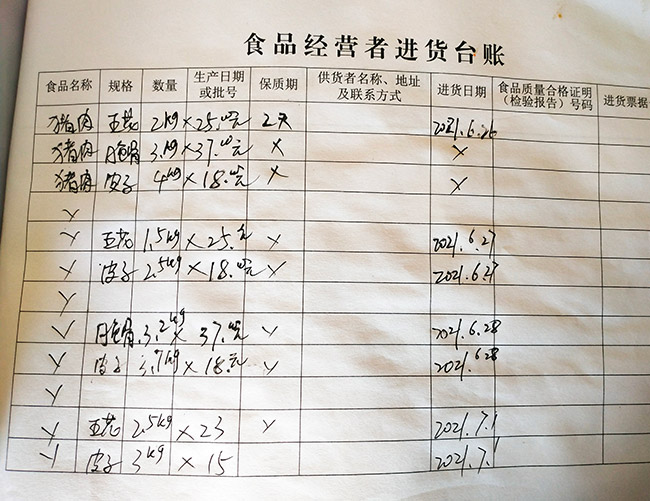 食品经营者进货台账
食品名称 规格 数量 生产日期或批号 保质期 供货者名称、地址及联系方式 进货日期 食品质量合格证明(检验报告)号码 进货票据
猪肉 五花 2kg × 25.00元 2天 2021.6.26
猪肉 3.1kg × 37.00元 × ×
猪肉 皮子 4kg × 18.00元 × ×
×
× 五花 1.5kg × 25.元 × 2021.6.27
× 皮子 2.5kg × 18.00元 × 2021.6.27
×
× 3.2kg × 37.00元 × 2021.6.28
× 皮子 3.7kg × 18.元 × 2021.6.28
×
× 五花 2.5kg × 23 × 2021.7.1
× 皮子 3kg × 15 2021.7.1